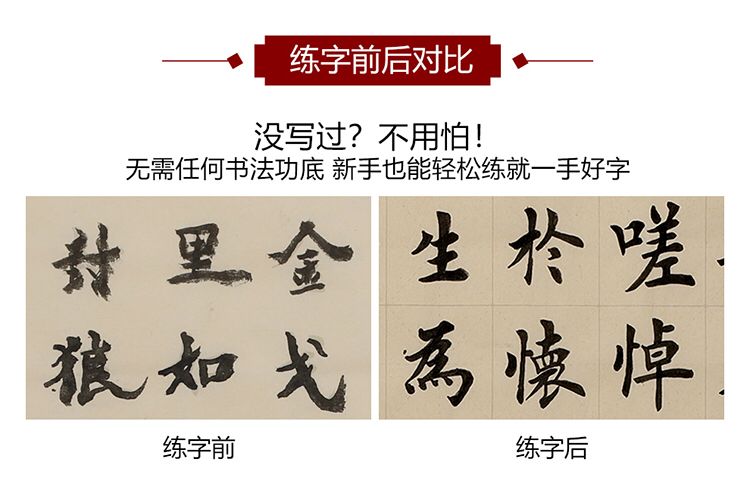 练字前后对比
没写过？不用怕！
无需任何书法功底 新手也能轻松练就一手好字
封里金
狼如戈
生於嗟
為懷悼
练字前
练字后